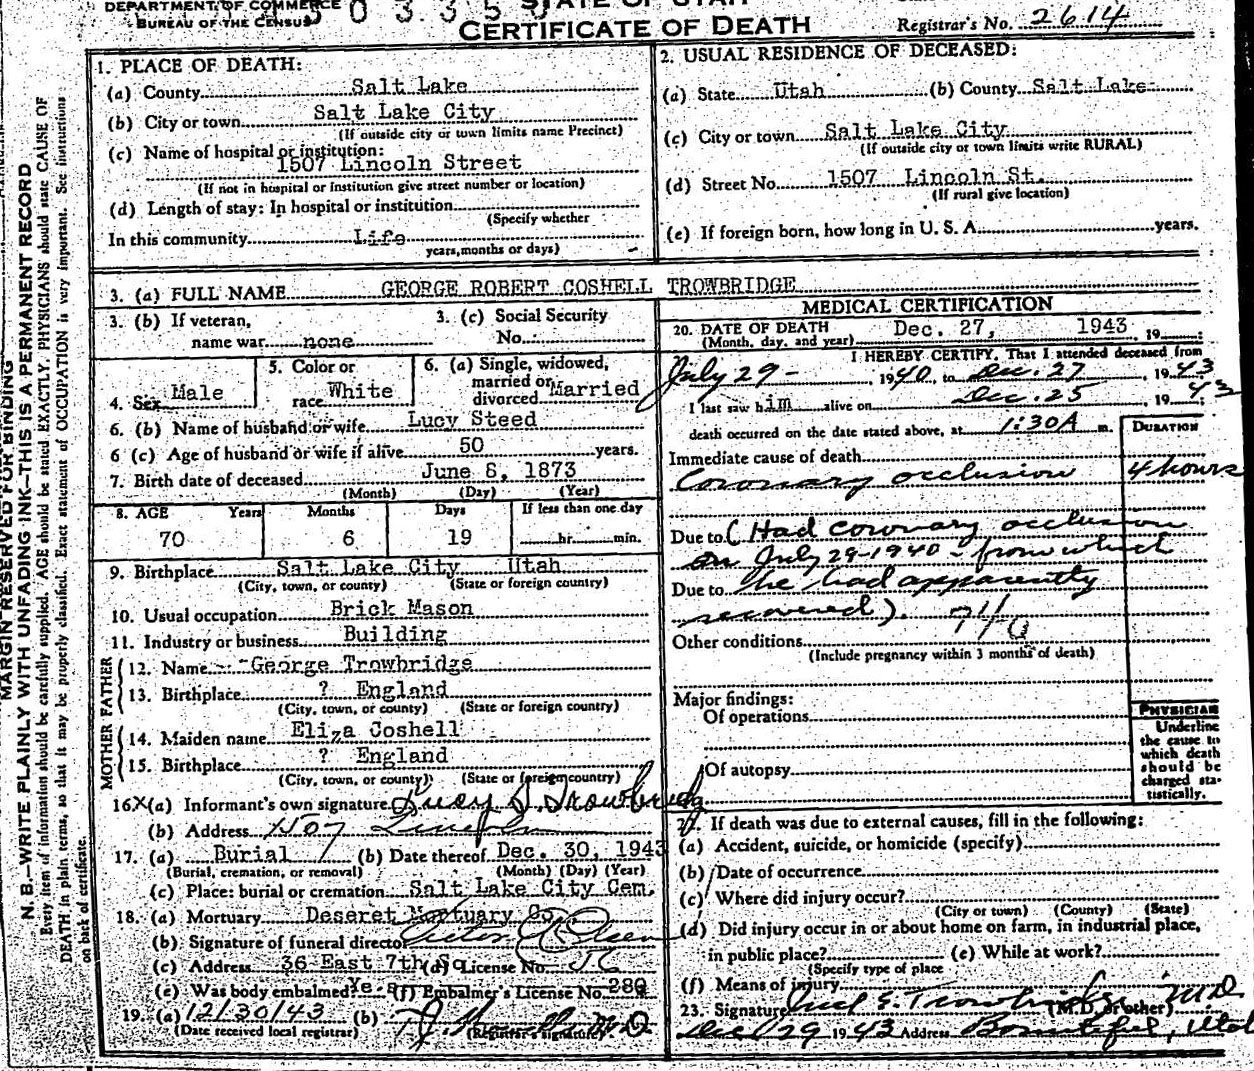 DEPARTMENT OF COMMERCE
BUREAU OF THE CENSUS
STATE OF UTAH
CERTIFICATE OF DEATH
Registrar's No. 2614
MARGIN RESERVED FOR BINDING
N. B.—WRITE PLAINLY WITH UNFADING INK—THIS IS A PERMANENT RECORD
Every item of information should be carefully supplied. AGE should be stated EXACTLY. PHYSICIANS should state CAUSE OF
DEATH in plain terms, so that it may be properly classified. Exact statement of OCCUPATION is very important. See instructions
on back of certificate.
1. PLACE OF DEATH:
(a) County Salt Lake
(b) City or town Salt Lake City
(If outside city or town limits name Precinct)
(c) Name of hospital or institution:
1507 Lincoln Street
(If not in hospital or institution give street number or location)
(d) Length of stay: In hospital or institution
(Specify whether
In this community Life
years, months or days)
2. USUAL RESIDENCE OF DECEASED:
(a) State Utah (b) County Salt Lake
(c) City or town Salt Lake City
(If outside city or town limits write RURAL)
(d) Street No. 1507 Lincoln St.
(If rural give location)
(e) If foreign born, how long in U. S. A. years.
3. (a) FULL NAME GEORGE ROBERT COSHELL TROWBRIDGE
3. (b) If veteran,
name war none
3. (c) Social Security
No.
4. Sex Male
5. Color or
race White
6. (a) Single, widowed,
married or
divorced Married
6. (b) Name of husband or wife Lucy Steed
6 (c) Age of husband or wife if alive 50 years.
7. Birth date of deceased June 8, 1873
(Month) (Day) (Year)
8. AGE Years Months Days If less than one day
70 6 19 hr. min.
9. Birthplace Salt Lake City Utah
(City, town, or county) (State or foreign country)
10. Usual occupation Brick Mason
11. Industry or business Building
FATHER
12. Name George Trowbridge
13. Birthplace ? England
(City, town, or county) (State or foreign country)
MOTHER
14. Maiden name Eliza Coshell
15. Birthplace ? England
(City, town, or county) (State or foreign country)
16 X (a) Informant's own signature Lucy S. Trowbridge
(b) Address 1507 Lincoln
17. (a) Burial (b) Date thereof Dec. 30, 1943
(Burial, cremation, or removal) (Month) (Day) (Year)
(c) Place: burial or cremation Salt Lake City Cem.
18. (a) Mortuary Deseret Mortuary Co.
(b) Signature of funeral director
(c) Address 36 East 7th So (d) License No.
(e) Was body embalmed? Yes (f) Embalmer's License No. 280
19. (a) 12/30/43 (b) M.D.
(Date received local registrar) (Registrar's signature)
MEDICAL CERTIFICATION
20. DATE OF DEATH Dec. 27, 1943 19
(Month, day, and year)
I HEREBY CERTIFY, That I attended deceased from
July 29 - 1940, to Dec. 27, 1943
I last saw him alive on Dec. 25, 1943
death occurred on the date stated above, at 1:30A m.
DURATION
Immediate cause of death
Coronary occlusion 4 hours
Due to (Had coronary occlusion
on July 29-1940 - from which
Due to he had apparently
recovered).
Other conditions
(Include pregnancy within 3 months of death)
Major findings:
Of operations
Of autopsy
PHYSICIAN
Underline
the cause to
which death
should be
charged sta-
tistically.
If death was due to external causes, fill in the following:
(a) Accident, suicide, or homicide (specify)
(b) Date of occurrence
(c) Where did injury occur?
(City or town) (County) (State)
(d) Did injury occur in or about home on farm, in industrial place,
in public place? (e) While at work?
(Specify type of place
(f) Means of injury
23. Signature E. Trowbridge M.D.
(M.D. or other)
Dec 29 1943 Address Bountiful, Utah